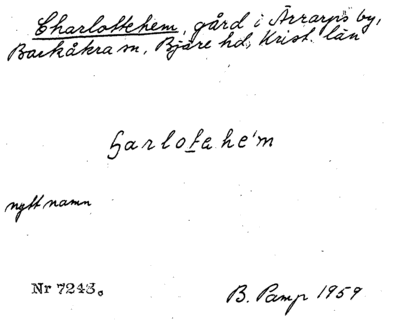 Charlottehem, gård i Ärrarps by,
Barkåkra sn, Bjäre hd, Krist. län
ʃarlotəhe'm
nytt namn
Nr 7243.
B. Pamp 1959